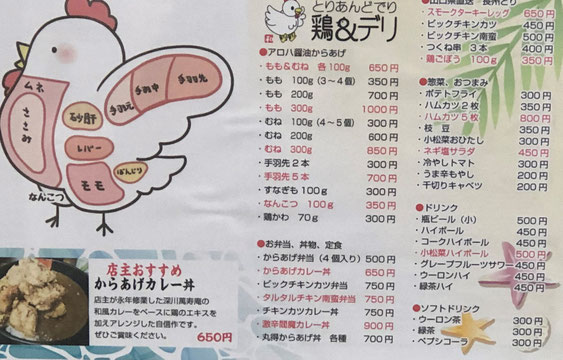 ムネ
ささみ
砂肝
レバー
モモ
ぼんじり
手羽元
手羽中
手羽先
なんこつ
店主おすすめ
からあげカレー丼
店主が永年修業した深川萬寿庵の
和風カレーをベースに鶏のエキスを
加えアレンジした自信作です。
ぜひご賞味ください。 650円
とりあんどでり
鶏&デリ
●アロハ醤油からあげ
・もも&むね 各100g 650円
・もも 100g (3〜4個) 350円
・もも 200g 700円
・もも 300g 1000円
・むね 100g (4〜5個) 300円
・むね 200g 600円
・むね 300g 850円
・手羽先2本 300円
・手羽先5本 700円
・すなぎも100g 300円
・なんこつ 100g 350円
・鶏かわ 70g 300円
●お弁当、丼物、定食
・からあげ弁当 (4個入り) 500円
・からあげカレー丼 650円
・ビックチキンカツ弁当 650円
・タルタルチキン南蛮弁当 750円
・チキンカツカレー丼 750円
・激辛閻魔カレー丼 900円
・丸得からあげ丼 各種 700円
・スモークターキーレッグ 650円
・ビックチキンカツ 450円
・ビックチキン南蛮 500円
・つくね串 3本 400円
・鶏ごぼう 100g 350円
●惣菜、おつまみ
・ポテトフライ 300円
・ハムカツ2枚 350円
・ハムカツ5枚 800円
・枝豆 350円
・小松菜おひたし 300円
・ネギ塩サラダ 450円
・冷やしトマト 300円
・うま辛もやし 200円
・千切りキャベツ 200円
●ドリンク
・瓶ビール (小) 500円
・ハイボール 450円
・コークハイボール 450円
・小松菜ハイボール 500円
・グレープフルーツサワー 450円
・ウーロンハイ 450円
・緑茶ハイ 450円
●ソフトドリンク
・ウーロン茶 300円
・緑茶 300円
・ペプシコーラ 300円